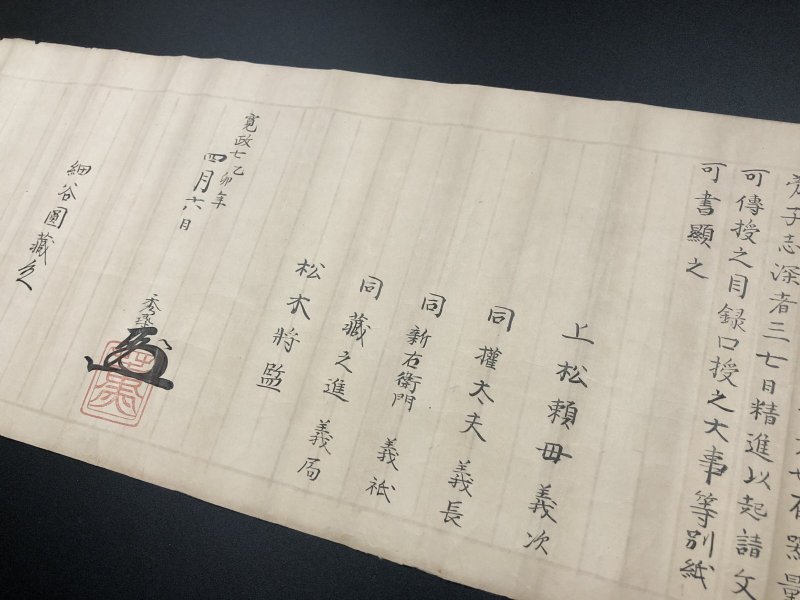 旁子志深者三七日精進以起請文
可傳授之目録口授之大事等別紙
可書顯之
上松頼母義次
同權太夫義長
同新右衛門義祇
同藏之進義局
松木將監
寛政七乙卯年
四月六日
細谷圓藏殿